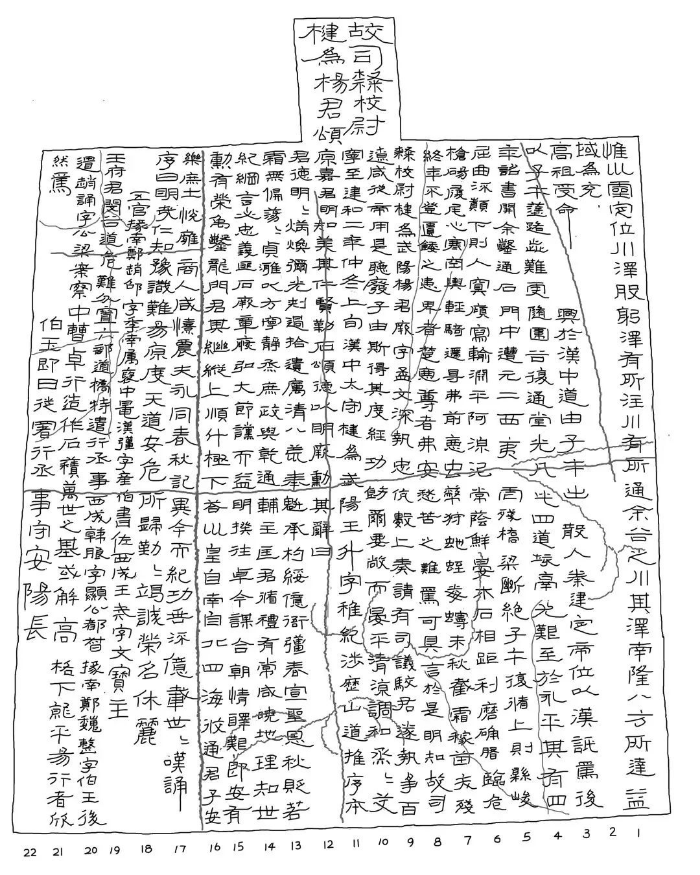 故司隸校尉
楗為楊君頌
惟巛靈定位川澤股躬澤有所注川有所通余谷之川其澤南隆八方所達益
域為充
高祖受命興於漢中道由子午出散入秦建定帝位以漢詆焉後
以子午塗路歰難更隨圍谷復通堂光凡此四道垓鬲尤艱至於永平其有四
年詔書開余鑿通石門中遭元二西夷虐殘橋梁斷絕子午復循上則縣峻
屈曲流顛下則入冥傾寫輸淵平阿淖泥常蔭鮮晏木石相距利磨确磐臨危
槍碭履尾心寒空輿輕騎遰㝵弗前惡虫蔽狩虵蛭毒蟃未秋截霜稼苗夭殘
終年不登匱餧之患卑者楚惡尊者弗安愁苦之難焉可具言於是明知故司
隸校尉楗為武陽楊君厥字孟文深執忠伉數上奏請有司議駮君遂執爭百
遼咸從帝用是聽廢子由斯得其度經功飭爾要敞而晏平清涼調和烝〻艾
寧至建和二年仲冬上旬漢中大守楗為武陽王升字稚紀涉歷山道推序本
原嘉君明知美其仁賢勒石頌德以明厥勳其辭曰
君德明〻炳煥彌光刺過拾遺厲清八荒奉魁承杓綏億衙彊春宣聖恩秋貶若
霜無偏蕩〻貞雅以方寧靜烝庶政與乾通輔主匡君循禮有常咸曉地理知世
紀綱言必忠義匪石厥章恢弘大節讜而益明揆往卓今謀合朝情醳艱即安有
勳有榮禹鑿龍門君其繼縱上順斗極下荅巛皇自南自北四海攸通君子安
樂庶士悅雍商人咸憘農夫永同春秋記異今而紀功垂流億載世〻嘆誦
序曰明哉仁知豫識難易原度天道安危所歸勤〻竭誠榮名休麗
五官掾南鄭趙邵字季南屬褒中晁漢彊字產伯書佐西成王戒字文寶主
王府君閔谷道危難分置六部道橋特遣行丞事西成韓朖字顯公都督掾南鄭魏整字伯玉後
遣趙誦字公梁案察中曹卓行造作石積萬世之基或解高格下就平易行者欣
然焉伯玉即日徙署行丞事守安陽長
22 21 20 19 18 17 16 15 14 13 12 11 10 9 8 7 6 5 4 3 2 1